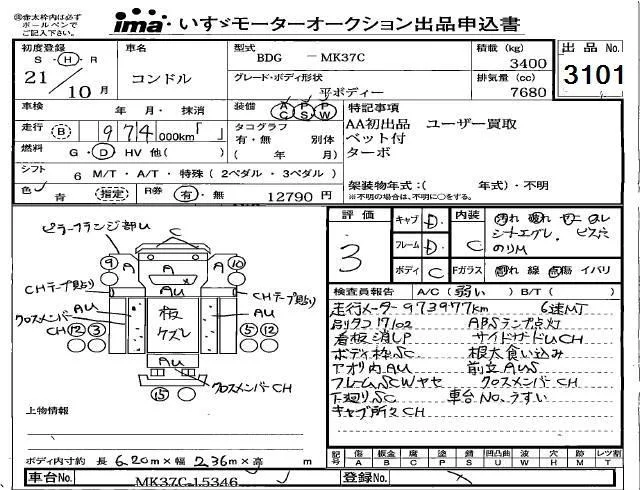 ※赤太枠内は必ず
ボールペンで
ご記入下さい。
ima いすゞモーターオークション出品申込書
初度登録 S・H・R 21/10月
車名 コンドル
型式 BDG － MK37C
グレード・ボディ形状 平ボディー
積載 (kg) 3400
排気量 (cc) 7680
出品 No. 3101
車検 年 月・ 抹消
装備 AC PS PW
特記事項
AA初出品 ユーザー買取
ベット付
ターボ
走行 B 974,000km「 」
タコグラフ 有・無 別体
( 年 月)
燃料 G・D・HV 他( )
シフト 6 M/T・A/T・特殊(2ペダル・3ペダル)
架装物年式:( 年式)・不明
※不明の場合は、不明に○をする。
色 青 指定 R券 有・無 12790 円
評価 3
キャブ D
フレーム D
ボディ C
内装 C
汚れ 破れ ヤニ ヌレ
シートエグレ、ビス穴
のりM
Fガラス 割れ 線 点傷 イバリ
検査員報告 A/C (弱い) B/T ( )
走行メーター973977km 6速MT
別タコ17102 ABSランプ点灯
看板消しP サイドガードUCH
ボディ枠SC 根太食い込み
アオリ内AU 前立AUS
フレームSCWヤセ クロスメンバーCH
下廻りSC 車台No.うすい
キャブ所々CH
ピラーフランジ部U
C
⑨ A A ⑩
AU
CHテープ貼り CHテープ貼り
AU AU
クロスメンバー
CH⑫③ ⑤⑫
板
ケズレ
AU
⑮ クロスメンバーCH
上物情報
ボディ内寸約 長 6.20m×幅 2.36m×高 m
記号 傷 A 板金 B 腐 C 塗 P 錆 S 凹凸曲 U 波 W 穴 H 跡 M レツ割 T
車台No. MK37C-15346
登録No.